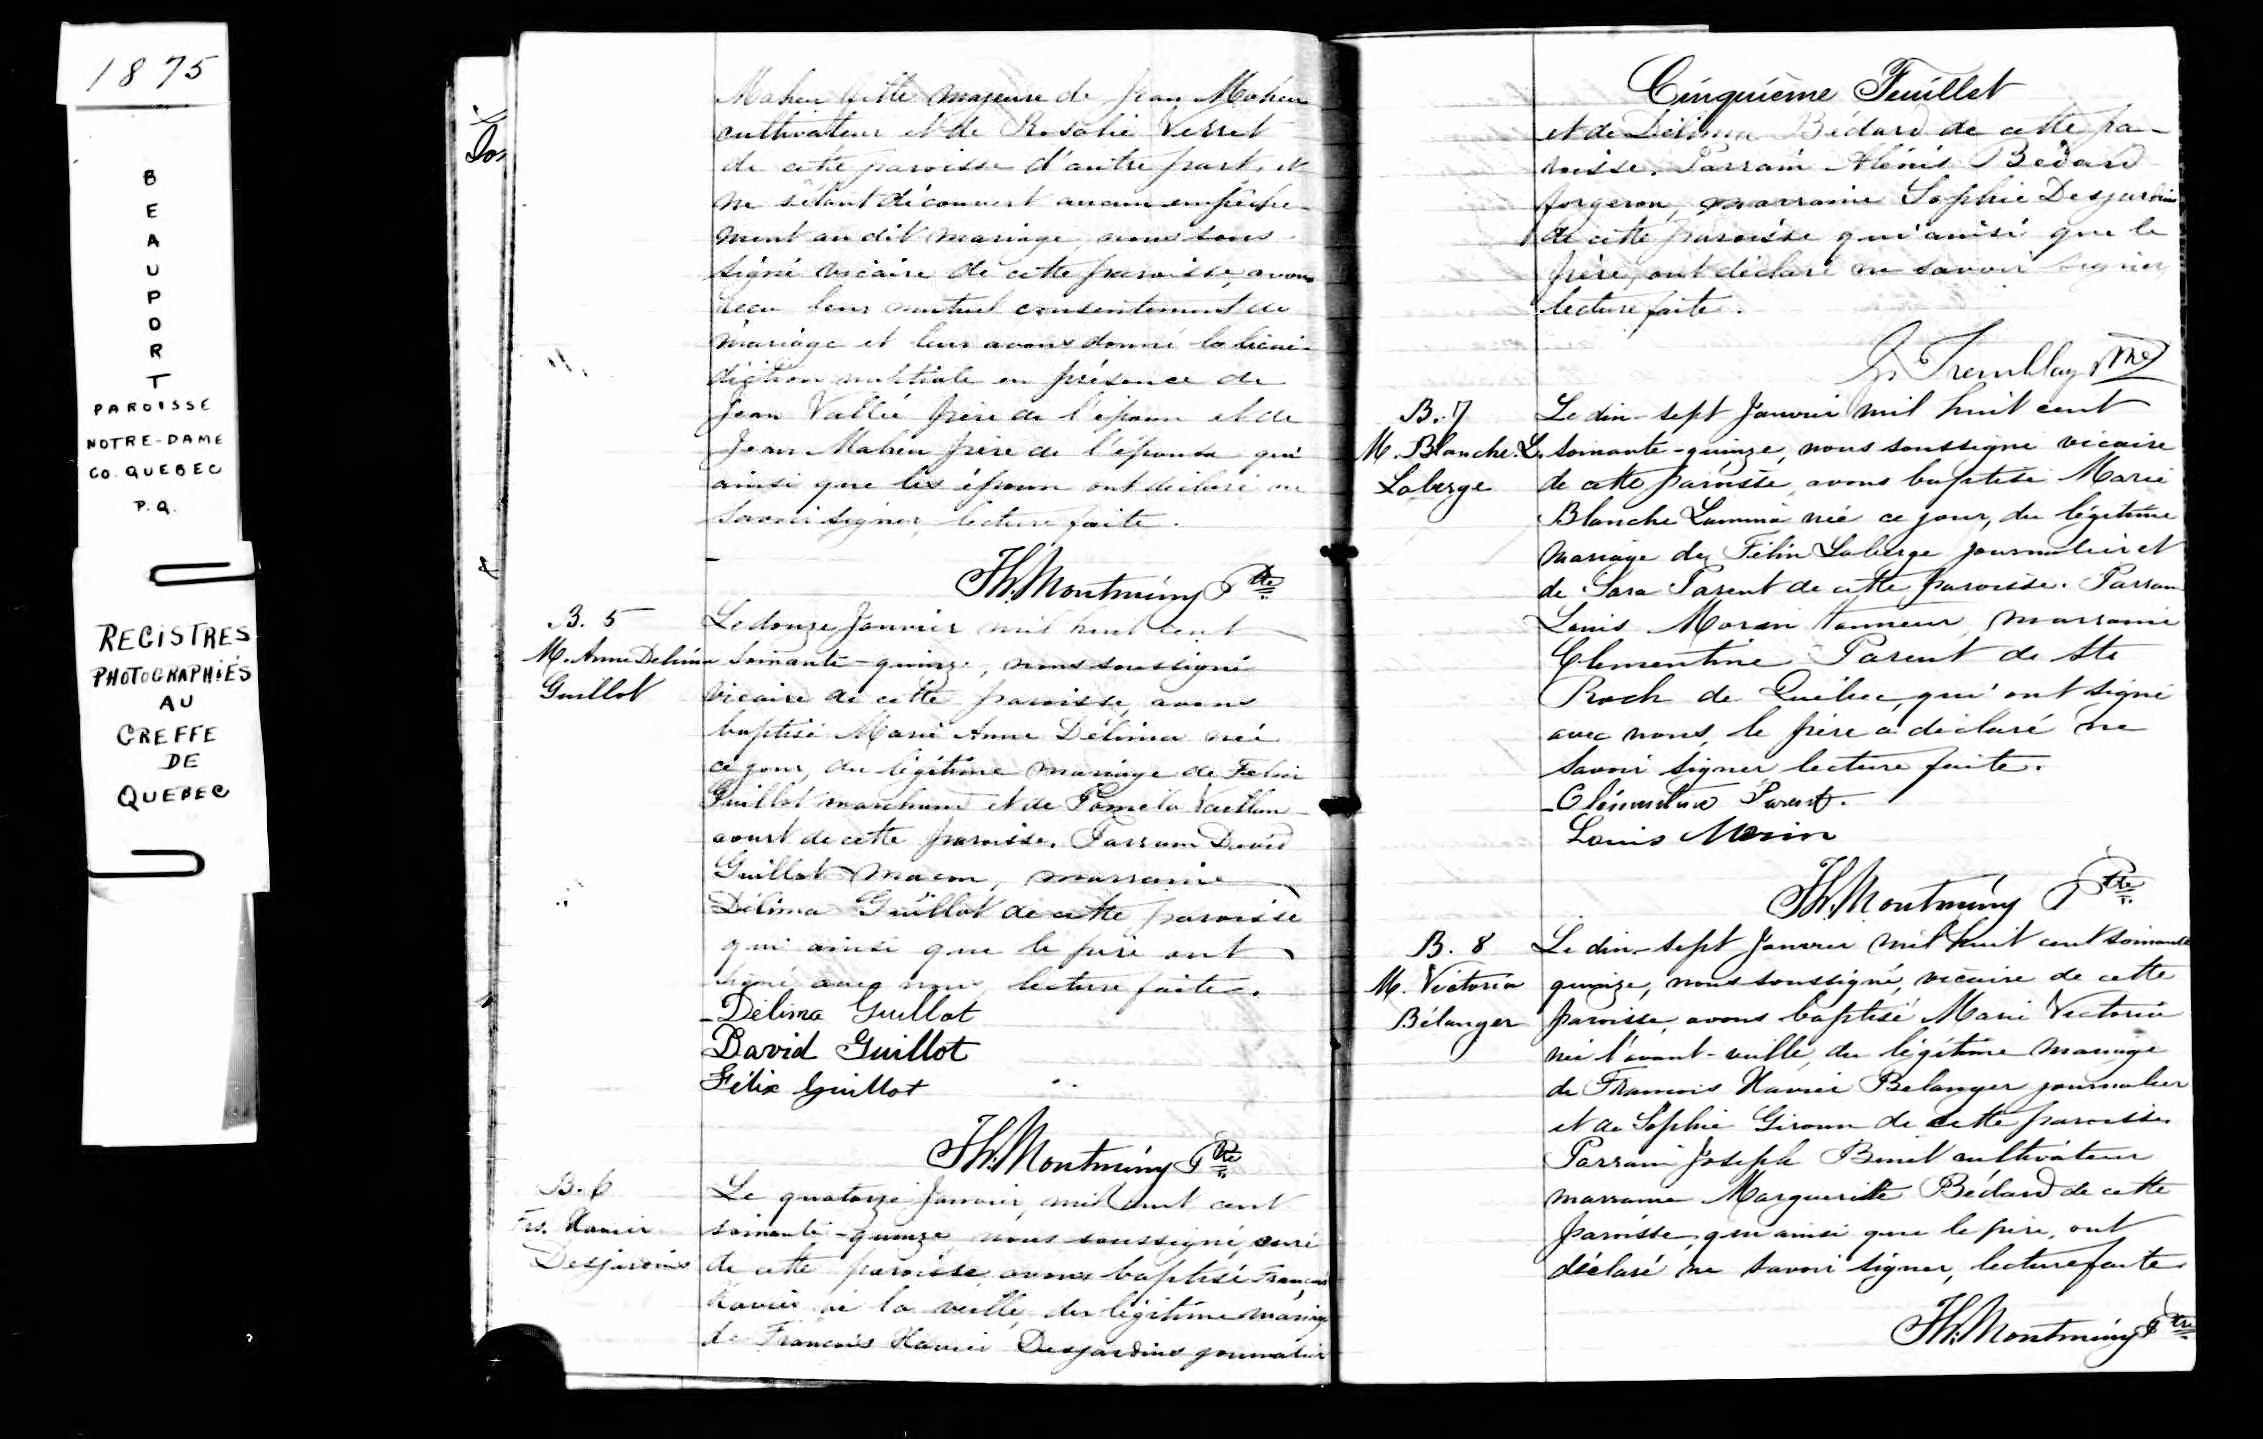 1875
BEAUPORT
PAROISSE
NOTRE-DAME
CO. QUEBEC
P.Q.
REGISTRES
PHOTOGRAPHIÉS
AU
GREFFE
DE
QUEBEC
Maheu fille majeure de Jean Maheu
cultivateur et de Rosalie Verret
de cette paroisse d'autre part, et
ne s'étant découvert aucun empêche-
ment au dit mariage, nous sous-
signé vicaire de cette paroisse, avons
reçu leur mutuel consentement de
mariage et leur avons donné la béné-
diction nuptiale en présence de
Jean Vallée frère de l'époux et de
Jean Maheu frère de l'épouse qui
ainsi que les époux ont déclaré ne
savoir signer, lecture faite.
Th. Montminy Ptre
B. 5
M. Anne Délima
Guillot
Le douze Janvier mil huit cent
soixante-quinze, nous soussigné
vicaire de cette paroisse, avons
baptisé Marie Anne Délima née
ce jour, du légitime mariage de Félix
Guillot marchand et de Paméla Vaillan-
court de cette paroisse. Parrain David
Guillot maçon, marraine
Délima Guillot de cette paroisse
qui ainsi que le père ont
signé avec nous, lecture faite.
Délima Guillot
David Guillot
Félix Guillot
Th. Montminy Ptre
B. 6
Frs. Xavier
Desjardins
Le quatorze Janvier, mil huit cent
soixante-quinze nous soussigné, curé
de cette paroisse avons baptisé François
Xavier né la veille, du légitime mariage
de François Xavier Desjardins journalier
Cinquième Feuillet
et de Délima Bédard de cette pa-
roisse. Parrain Bédard
forgeron, marraine Sophie Desjardins
de cette paroisse qui ainsi que le
père, ont déclaré ne savoir signer
lecture faite.
G. Tremblay Ptre
B. 7
M. Blanche. L.
Laberge
Le dix-sept Janvier mil huit cent
soixante-quinze, nous soussigné vicaire
de cette paroisse, avons baptisé Marie
Blanche née ce jour, du légitime
mariage de Félix Laberge journalier et
de Sara Parent de cette paroisse. Parrain
Louis Morin tanneur, marraine
Clementine Parent de St
Roch de Québec, qui ont signé
avec nous, le père a déclaré ne
savoir signer, lecture faite.
Clémentine Parent.
Louis Morin
Th. Montminy Ptre
B. 8
M. Victoria
Bélanger
Le dix-sept Janvier mil huit cent soixante
quinze, nous soussigné, vicaire de cette
paroisse, avons baptisé Marie Victoria
née l'avant-veille, du légitime mariage
de François Xavier Belanger journalier
et de Sophie Giroux de cette paroisse.
Parrain Joseph Binet cultivateur
marraine Marguerite Bédard de cette
paroisse, qui ainsi que le père, ont
déclaré ne savoir signer, lecture faite.
Th. Montminy Ptre